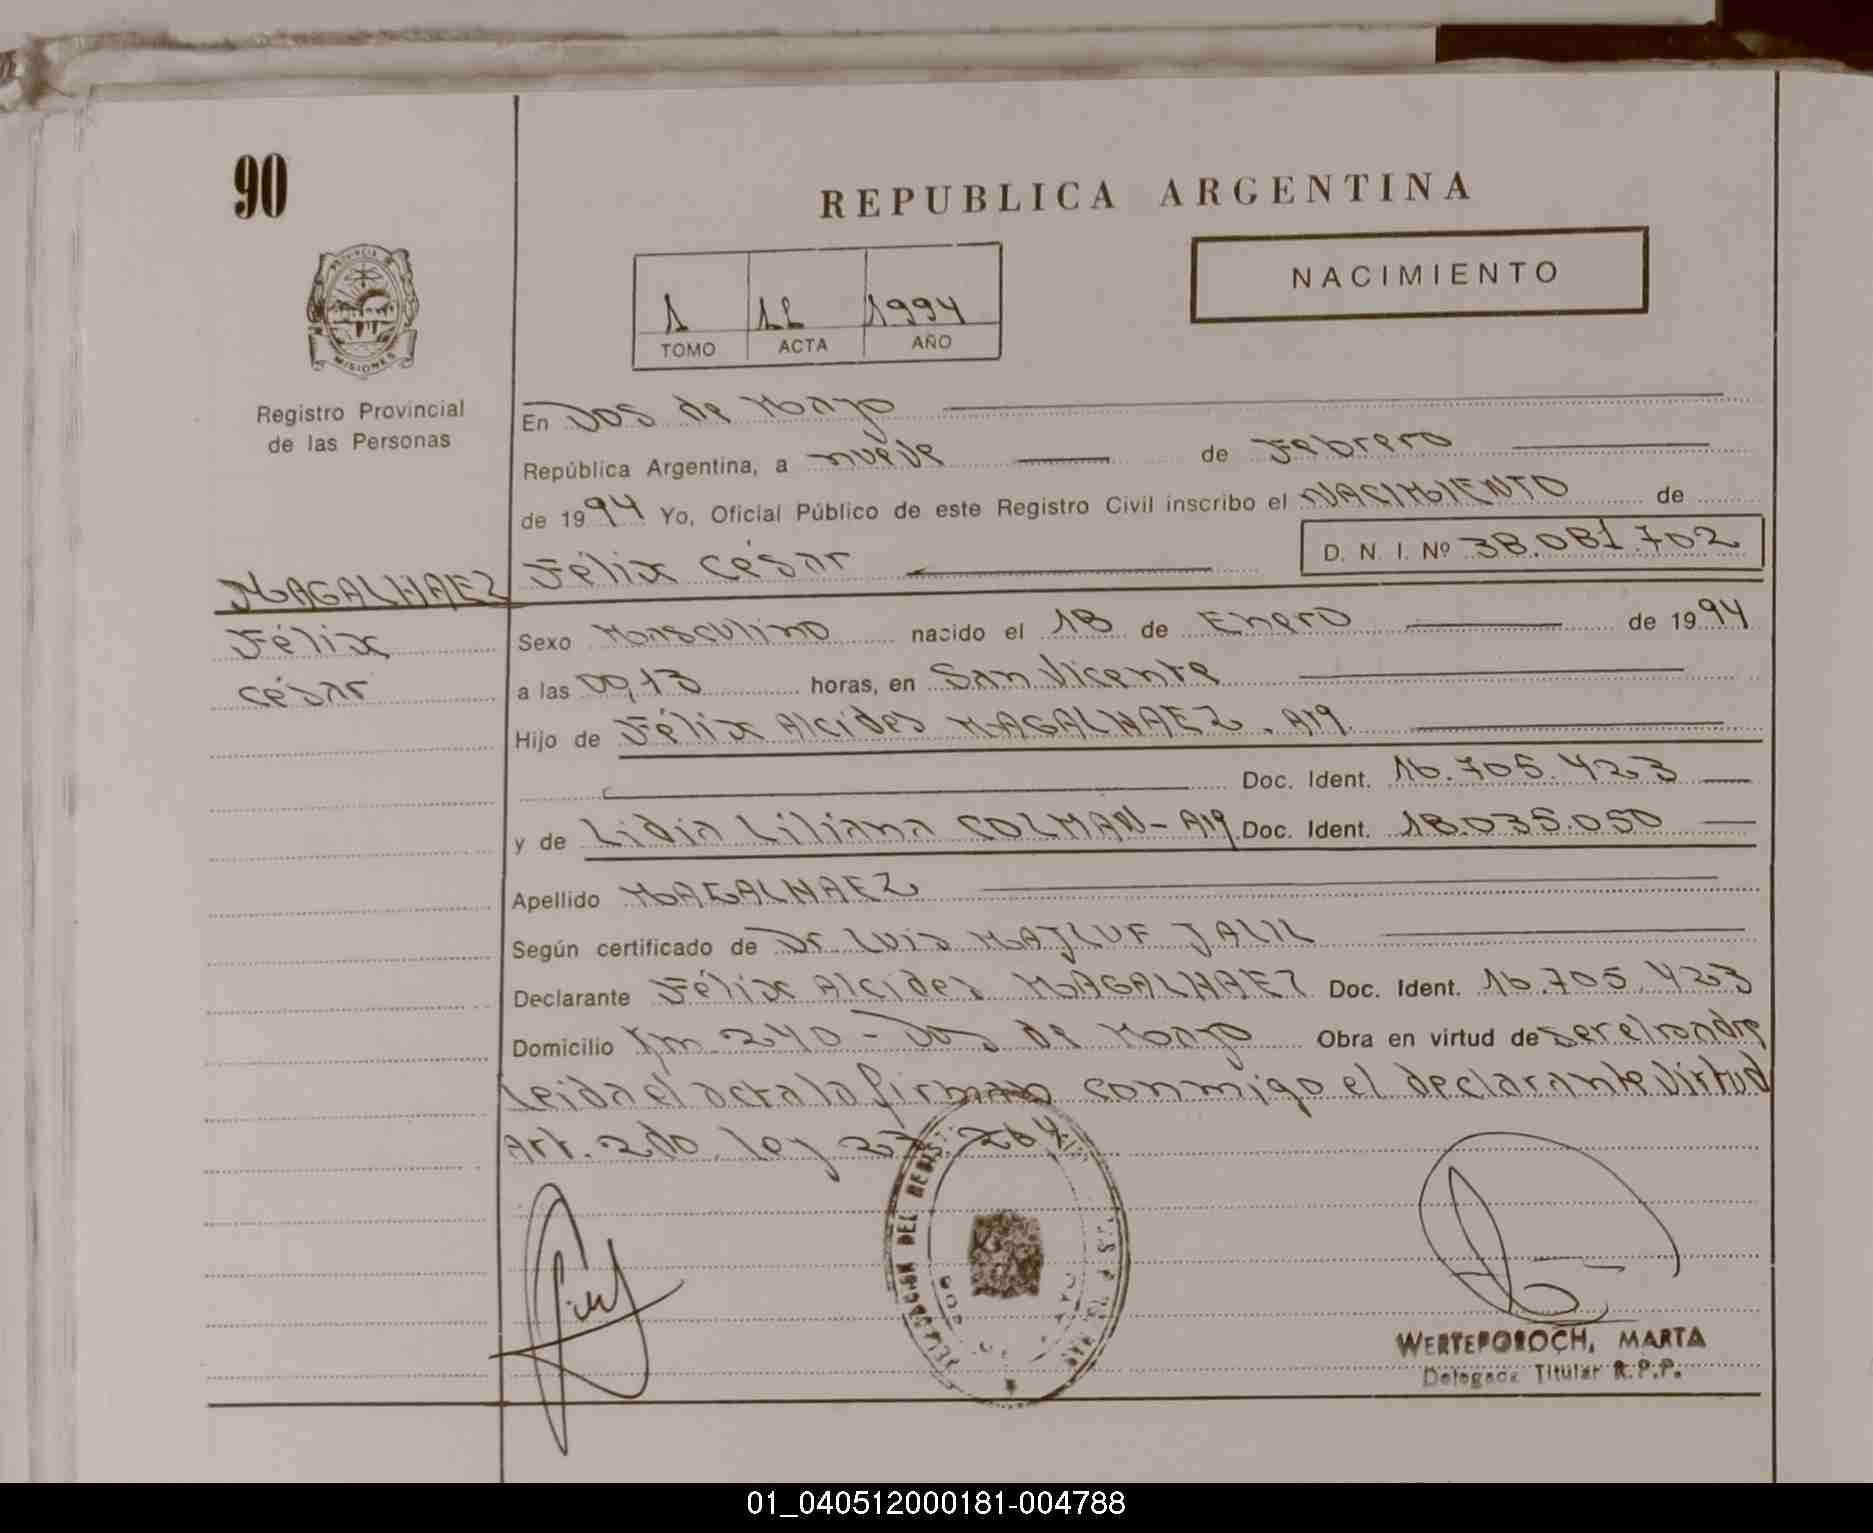 90
REPUBLICA ARGENTINA
NACIMIENTO
1 11 1994
TOMO ACTA AÑO
PROVINCIA DE
MISIONES
Registro Provincial
de las Personas
En Dos de Mayo
República Argentina, a nueve de Febrero
de 1994 Yo, Oficial Público de este Registro Civil inscribo el NACIMIENTO de
Félix César D. N. I. Nº 38.081.702
MAGALHAEZ
Félix
César
Sexo Masculino nacido el 18 de Enero de 1994
a las 00,13 horas, en San Vicente
Hijo de Félix Alcides MAGALHAEZ. Arg.
Doc. Ident. 16.705.423
y de Lidia Liliana COLMAN- Arg. Doc. Ident. 18.035.050
Apellido MAGALHAEZ
Según certificado de Dr. Luis MAJLUF JALIL
Declarante Félix Alcides MAGALHAEZ Doc. Ident. 16.705.423
Domicilio Km. 240 - Dos de Mayo Obra en virtud de ser el
leida el acta la firman conmigo el declarante virtud
Art. 2do. ley 23.264
WERTEPOROCH, MARTA
Delegada Titular R.P.P.
01_040512000181-004788